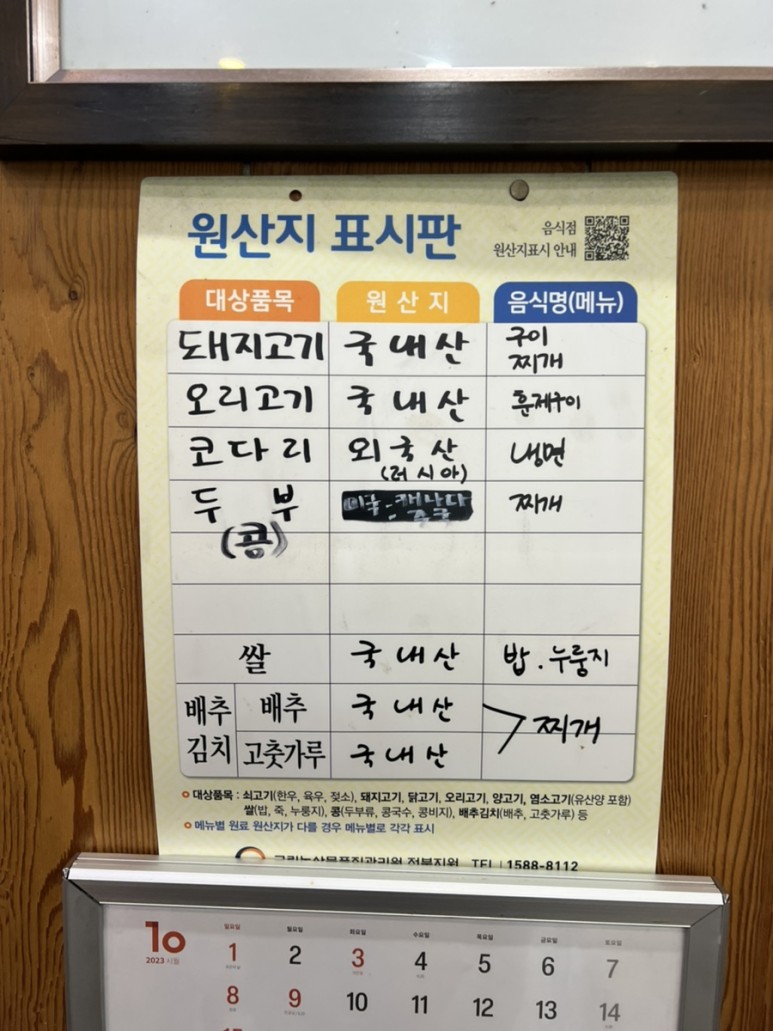 원산지 표시판
음식점
원산지표시 안내
대상품목 원산지 음식명(메뉴)
돼지고기 국내산 구이 찌개
오리고기 국내산 훈제구이
코다리 외국산 (러시아) 냉면
두부 (콩) 미국. 캐나다 중국 찌개
쌀 국내산 밥. 누룽지
배추김치 배추 국내산 찌개
고춧가루 국내산
대상품목 : 쇠고기(한우, 육우, 젖소), 돼지고기, 닭고기, 오리고기, 양고기, 염소고기(유산양 포함)
쌀(밥, 죽, 누룽지), 콩(두부류, 콩국수, 콩비지), 배추김치(배추, 고춧가루) 등
메뉴별 원료 원산지가 다를 경우 메뉴별로 각각 표시
국립농산물품질관리원 전북지원 TEL 1588-8112
10
2023 시월
일요일 월요일 화요일 수요일 목요일 금요일 토요일
1 2 3 4 5 6 7
8 9 10 11 12 13 14